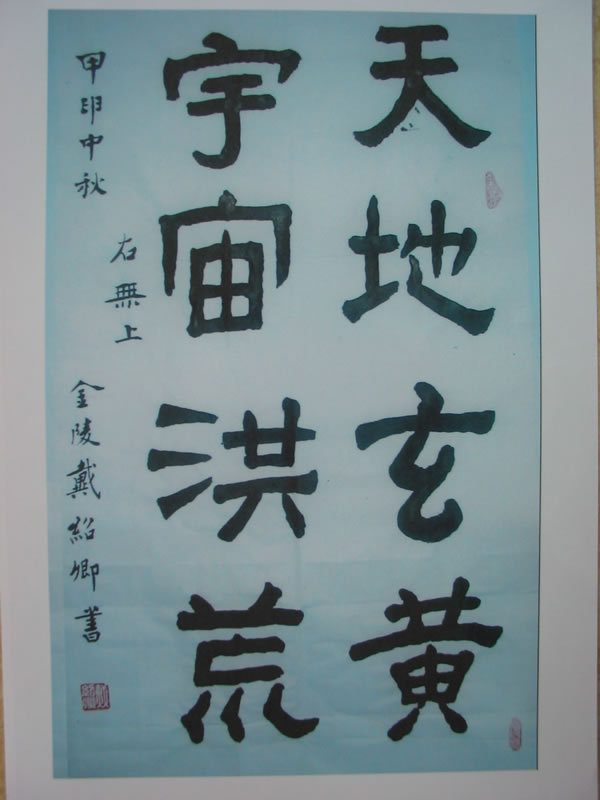 天地玄黄
宇宙洪荒
右無上
甲申中秋 金陵戴紹卿書